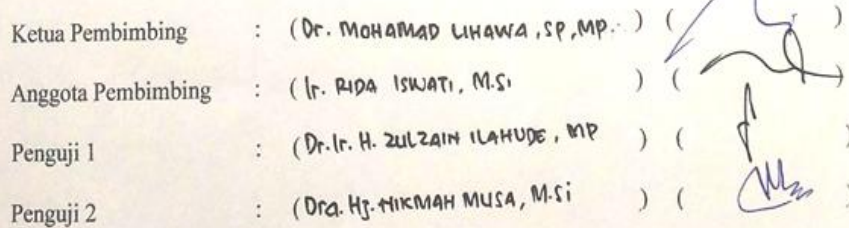 Ketua Pembimbing : (Dr. MOHAMAD LIHAWA, SP, MP. ) ( )
Anggota Pembimbing : (Ir. RIDA ISWATI, M.Si ) ( )
Penguji 1 : (Dr. Ir. H. ZULZAIN ILAHUDE, MP ) ( )
Penguji 2 : (Dra. Hj. NIKMAH MUSA, M.Si ) ( )